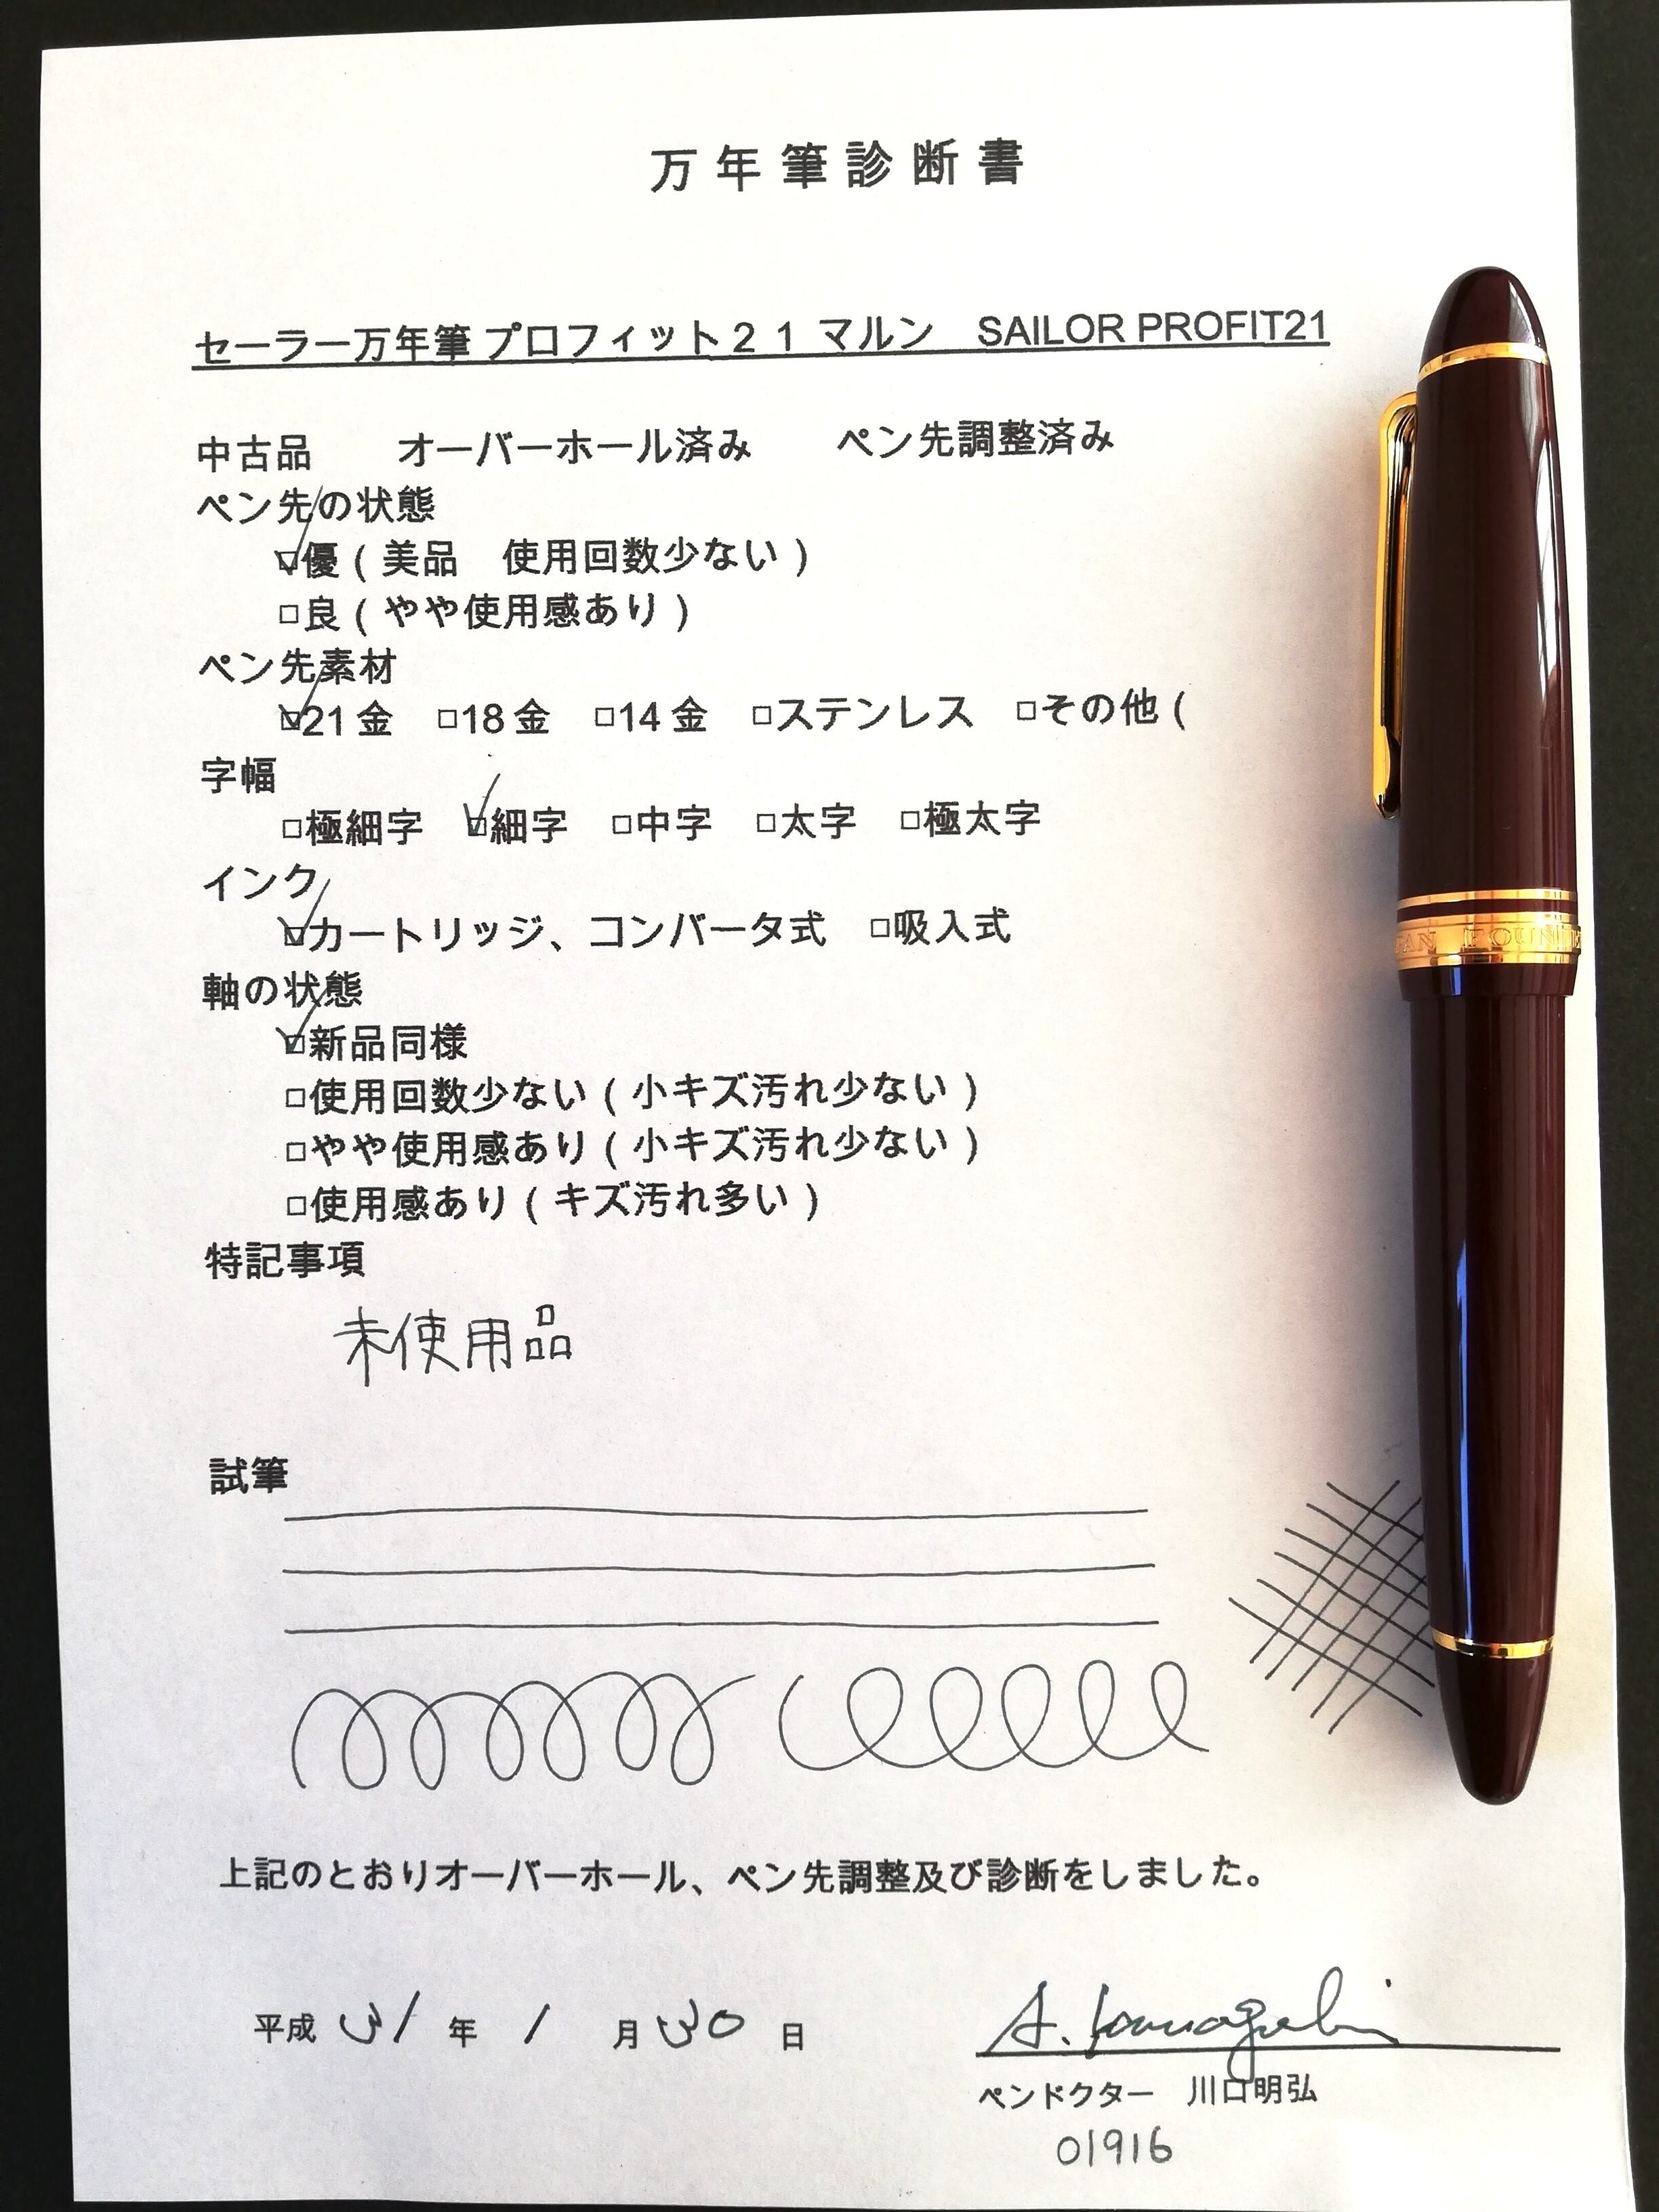 万年筆診断書
セーラー万年筆 プロフィット２１ マルン　SAILOR PROFIT21
中古品　　オーバーホール済み　　ペン先調整済み
ペン先の状態
☑優（美品　使用回数少ない）
□良（やや使用感あり）
ペン先素材
☑21金　□18金　□14金　□ステンレス　□その他（
字幅
□極細字　☑細字　□中字　□太字　□極太字
インク
☑カートリッジ、コンバータ式　□吸入式
軸の状態
☑新品同様
□使用回数少ない（小キズ汚れ少ない）
□やや使用感あり（小キズ汚れ少ない）
□使用感あり（キズ汚れ多い）
特記事項
未使用品
試筆
上記のとおりオーバーホール、ペン先調整及び診断をしました。
平成 31 年 1 月 30 日
A. Kawaguchi
ペンドクター　川口明弘
01916
FOUN